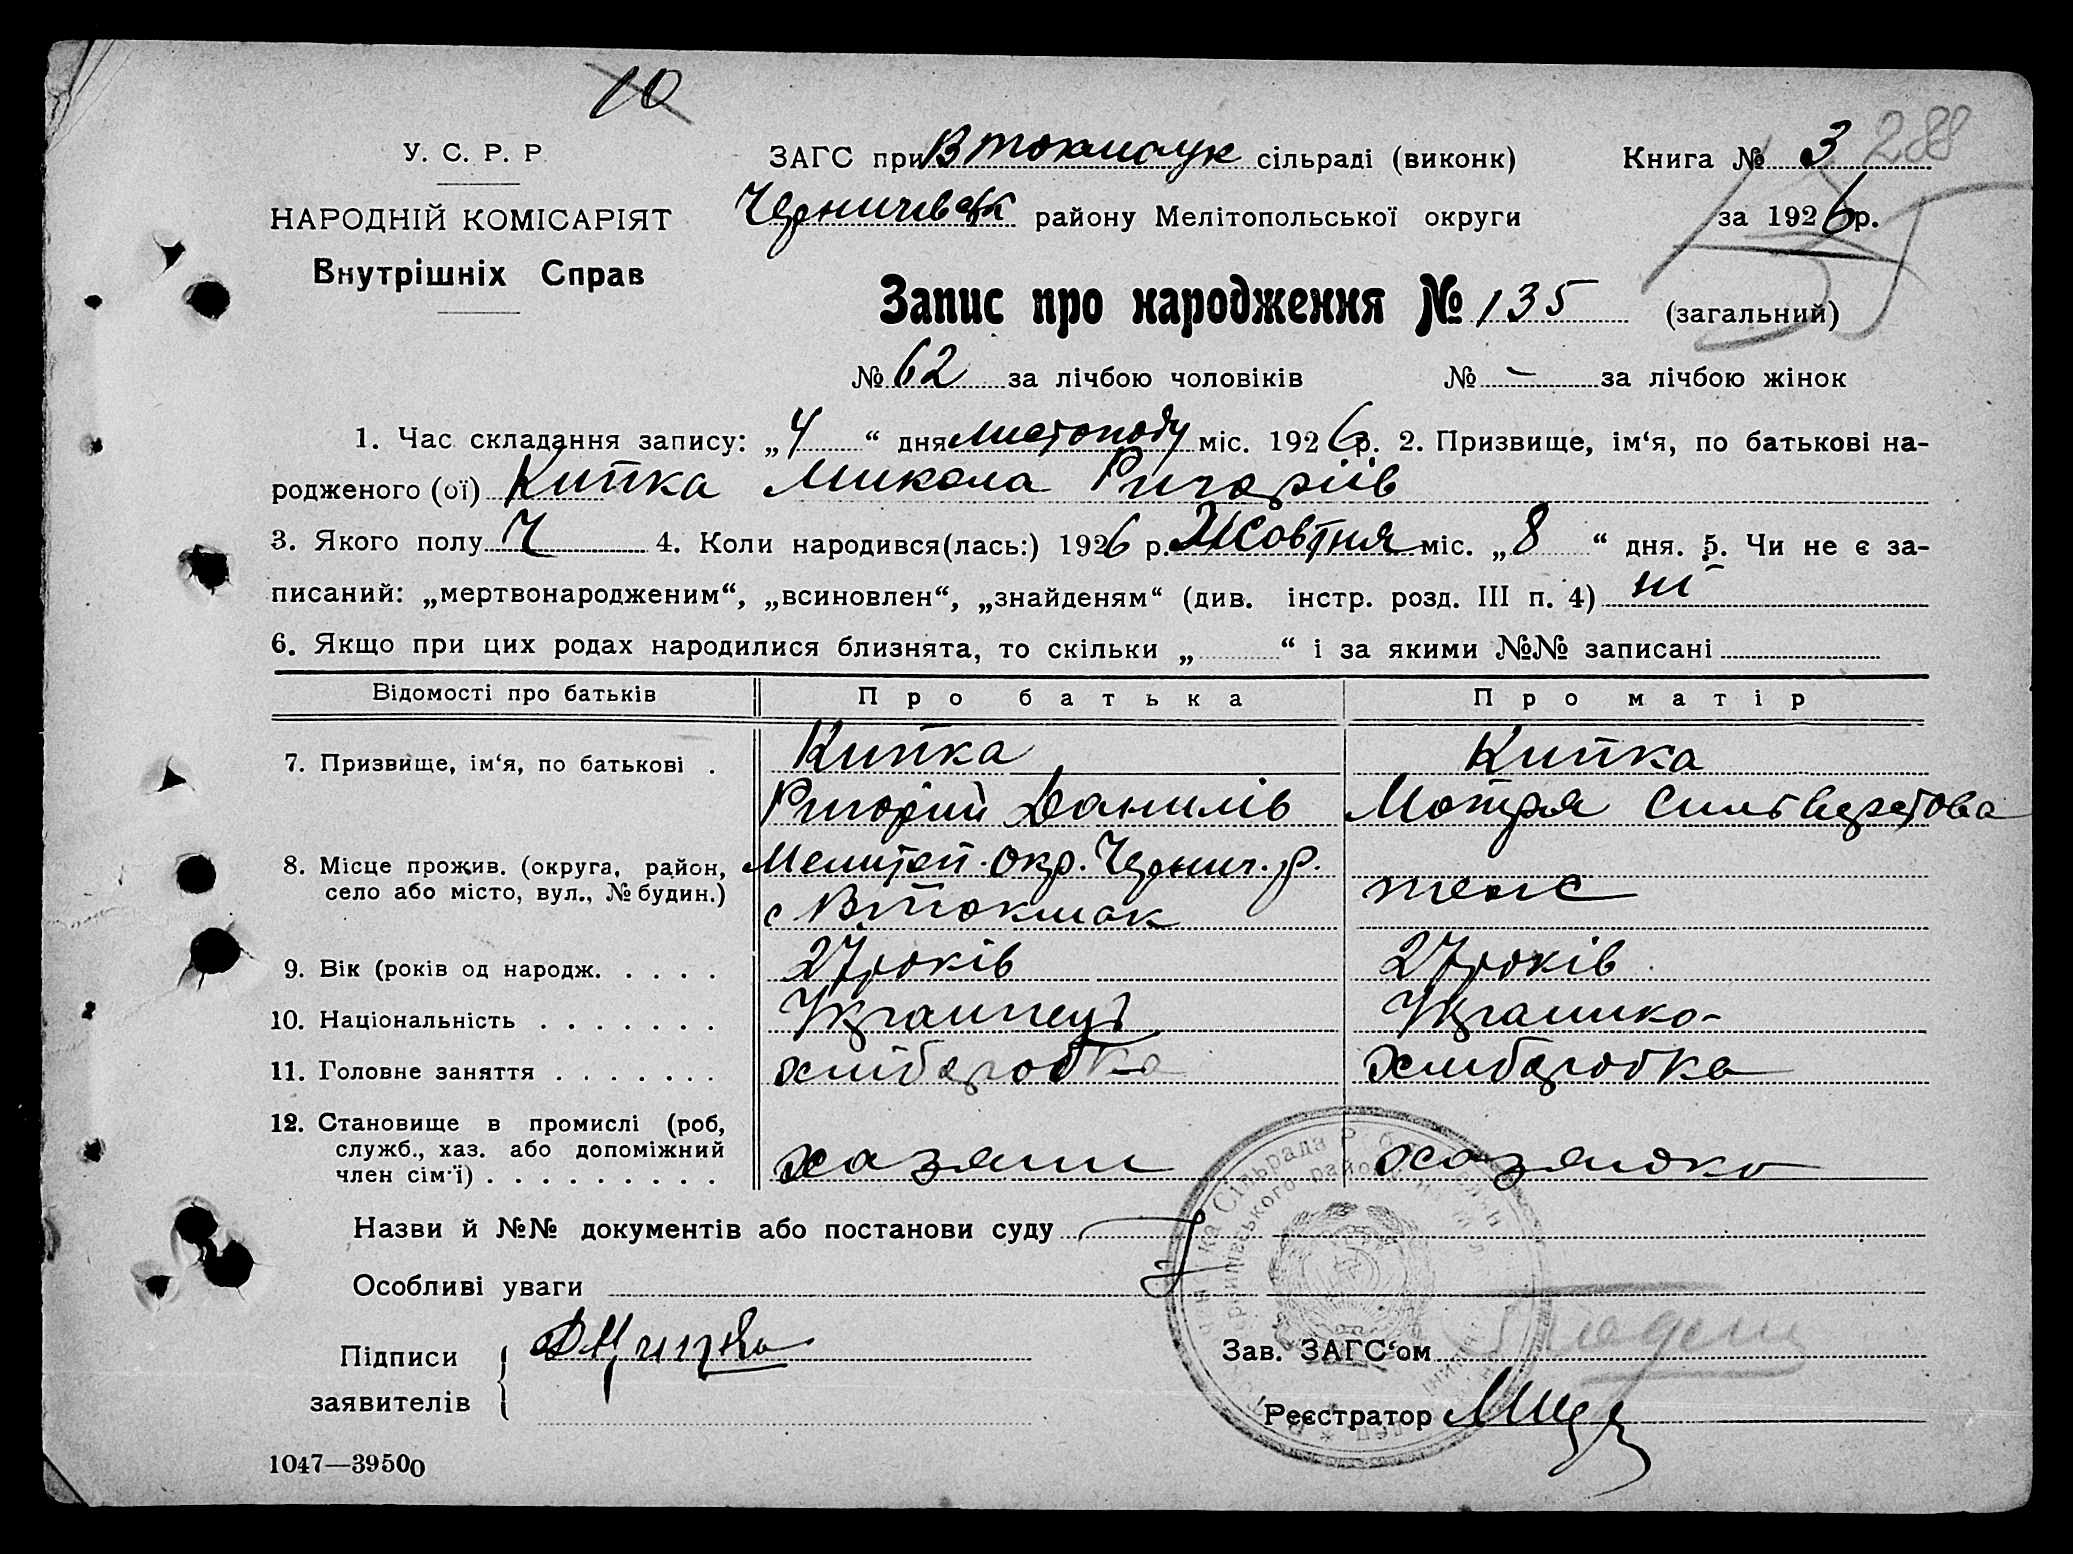 10
У. С. Р. Р.
НАРОДНІЙ КОМІСАРІЯТ
Внутрішніх Справ
ЗАГС при В Токмацук сільраді (виконк)
Книга № 3 288
Чернигівськ району Мелітопольської округи
за 1926 р.
Запис про народження № 135 (загальний)
№ 62 за лічбою чоловіків № - за лічбою жінок
1. Час складання запису: „4“ дня листопаду міс. 1926 р. 2. Призвище, ім‘я, по батькові на-
родженого (ої) Кипка Микола Григоріїв
3. Якого полу Ч 4. Коли народився(лась:) 1926 р. Жовтня міс. „8“ дня. 5. Чи не є за-
писаний: „мертвонародженим“, „всиновлен“, „знайденям“ (див. інстр. розд. III п. 4) ні
6. Якщо при цих родах народилися близнята, то скільки „ “ і за якими №№ записані
Відомості про батьків Про батька Про матір
7. Призвище, ім‘я, по батькові . Кипка Кипка
Григорій Данилів Мотря
8. Місце прожив. (округа, район, Мелитоп. окр. Черниг. р.
село або місто, вул., № будин.) с Вткокмак теж
9. Вік (років од народж. . . . . 27 років 27 років
10. Національність . . . . . . . Українець Українка
11. Головне заняття . . . . . . . хліборобка хліборобка
12. Становище в промислі (роб,
служб., хаз. або допоміжний хазяин хазяйка
член сім‘ї) . . . . . . . . .
Назви й №№ документів або постанови суду
Особливі уваги
Підписи
заявителів
Зав. ЗАГС‘ом
Реєстратор
1047—39500